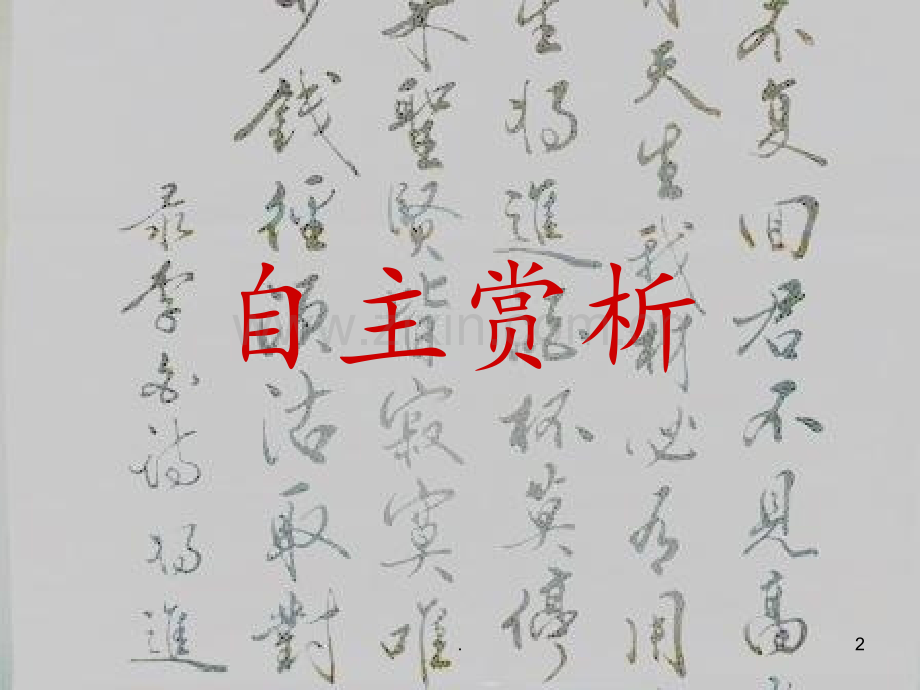 自主赏析
不复回君不見高
月天生我材必有用
生將進酒杯莫停
來聖賢皆寂寞唯
少錢徑須沽取對
录李白詩將進
www.zixin.com.cn
.
2